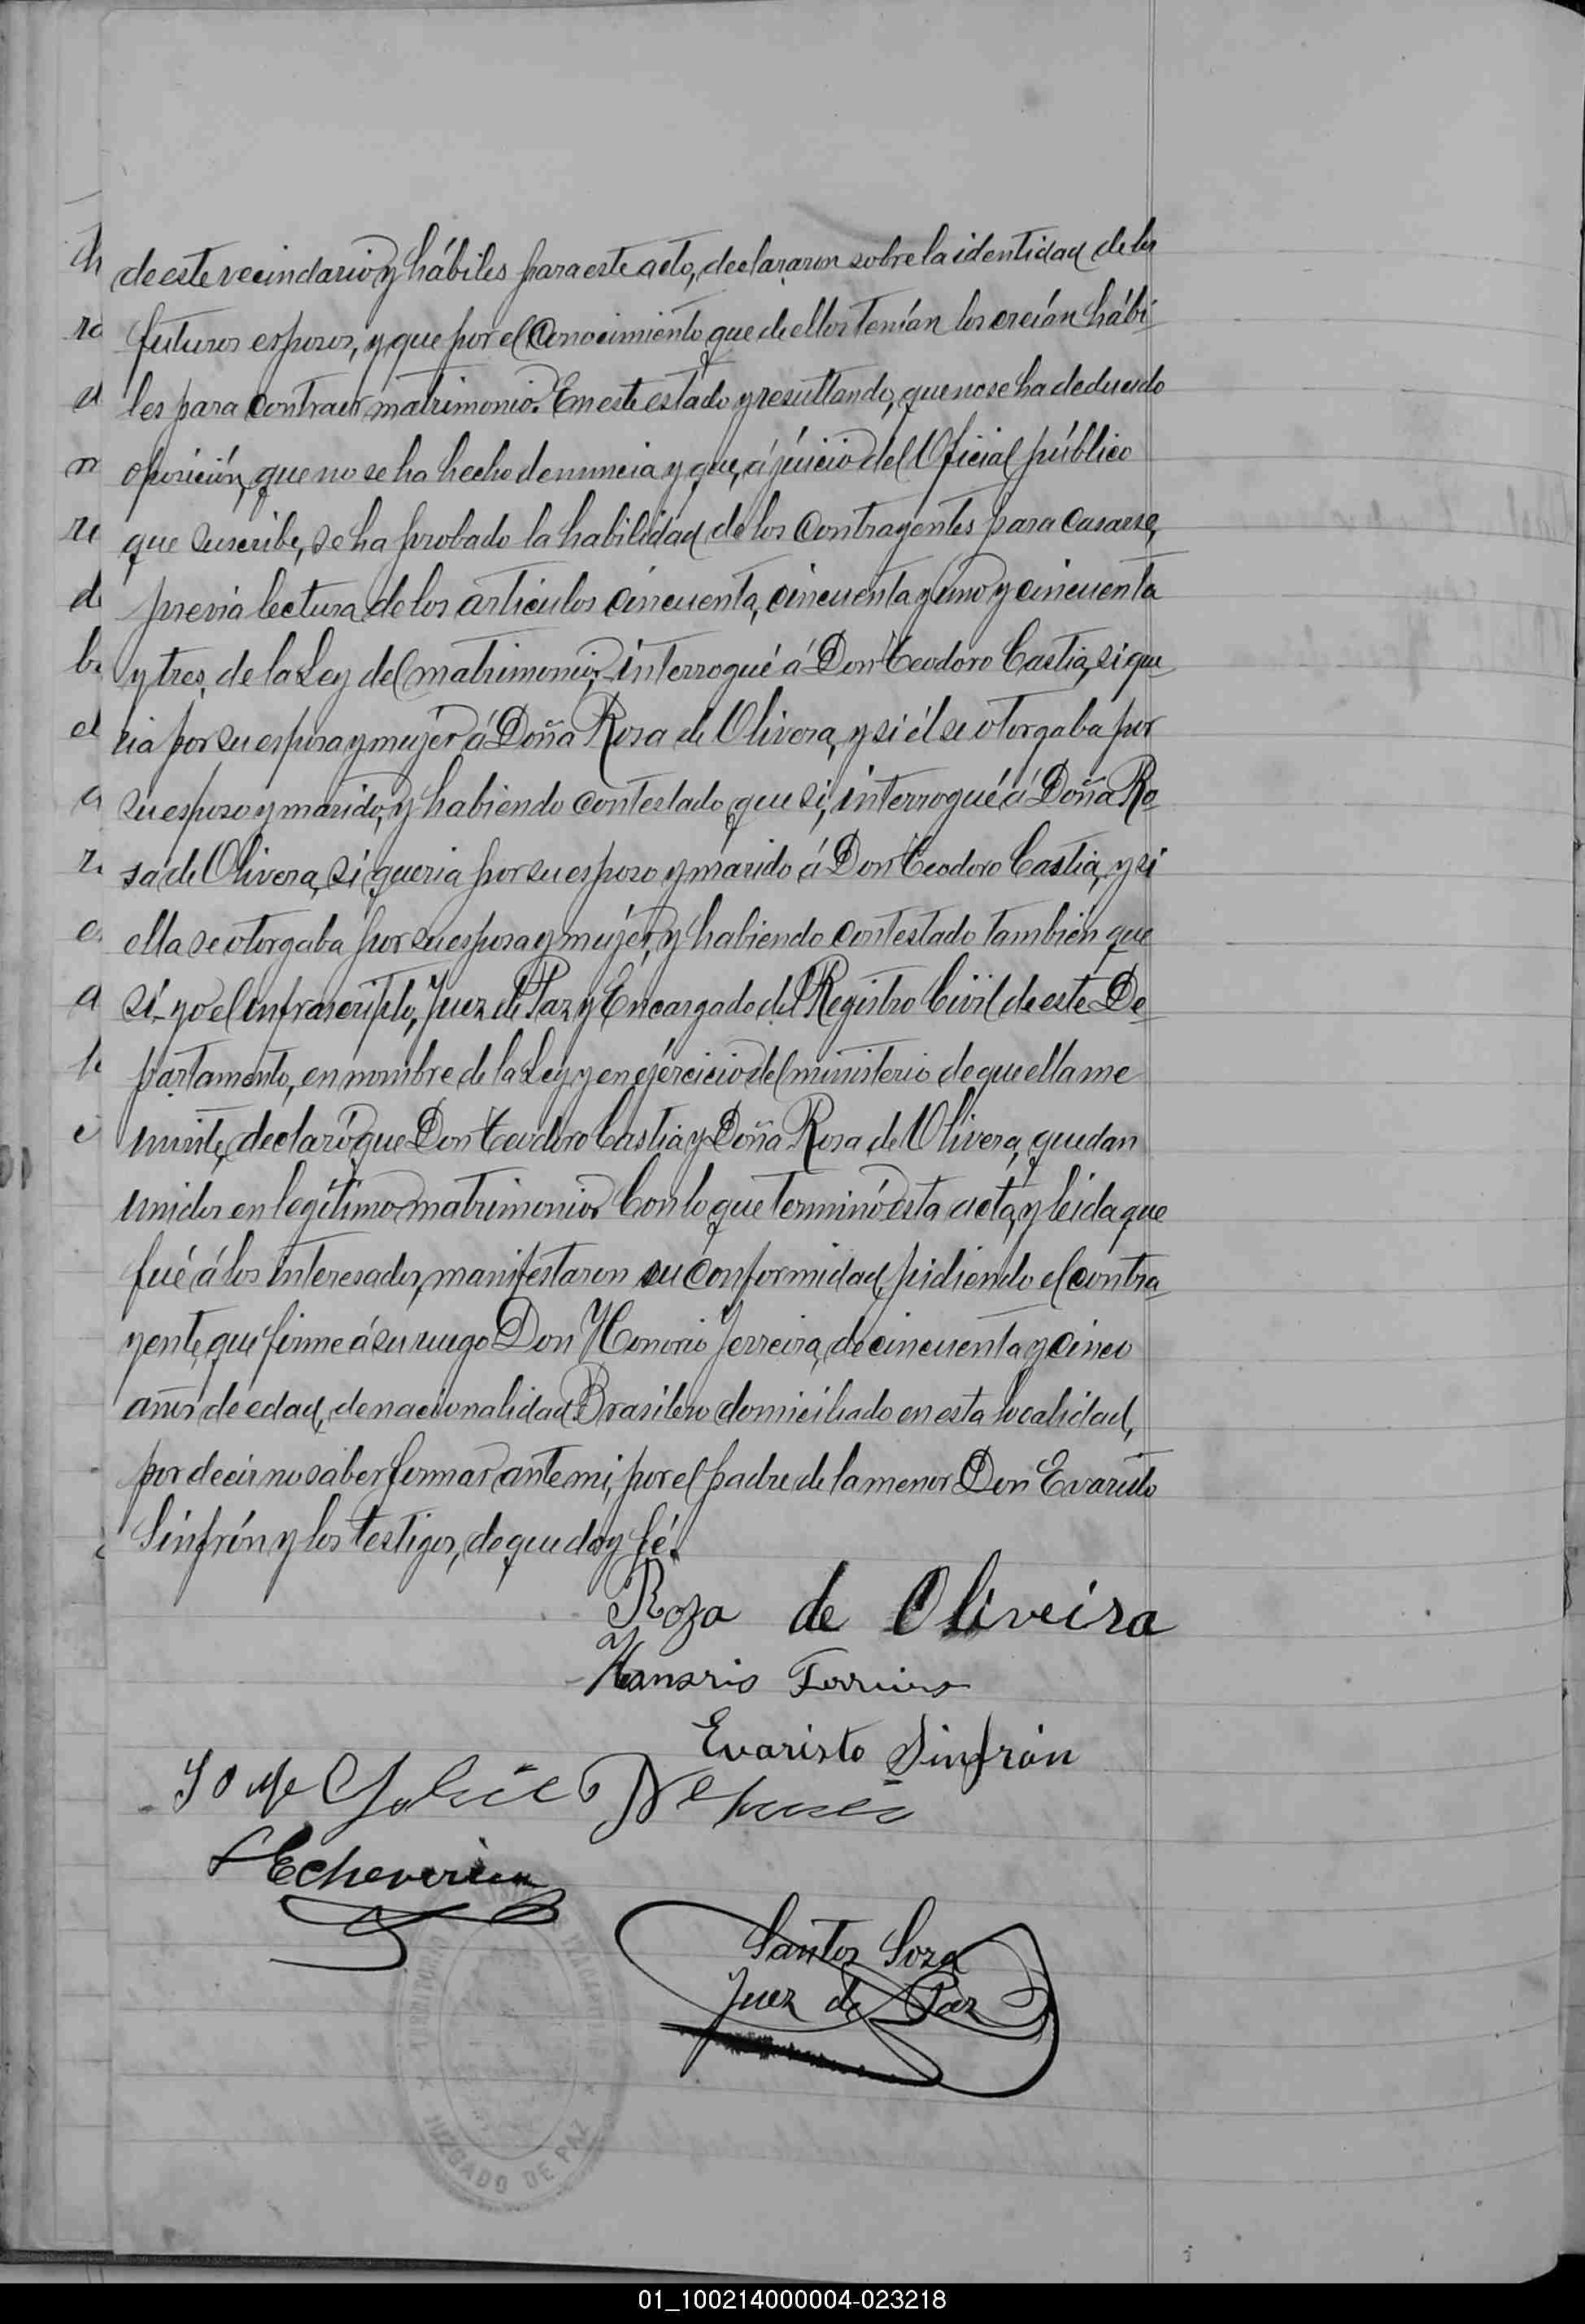 de este vecindario y hábiles para este acto, declararon sobre la identidad de los
futuros esposos, y que por el conocimiento que de ellos tenían los creían hábi
les para contraer matrimonio. En este estado y resultando, que no se ha deducido
oposición, que no se ha hecho denuncia y que, á juicio del Oficial público
que suscribe, se ha probado la habilidad de los contrayentes para casarse,
previa lectura de los artículos cincuenta, cincuenta y uno y cincuenta
y tres, de la Ley del matrimonio, interrogué á Don Teodoro Castia, si que
ria por su esposa y mujer á Doña Rosa de Olivera, y si él se otorgaba por
su esposo y marido, y habiendo contestado que si, interrogué á Doña Ro
sa de Olivera, si queria por su esposo y marido á Don Teodoro Castia, y si
ella se otorgaba por su esposa y mujer, y habiendo contestado también que
si, yo el infrascripto, Juez de Paz y Encargado del Registro Civil de este De
partamento, en nombre de la Ley y en ejércicio del ministerio de que ella me
inviste, declaró que Don Teodoro Castia y Doña Rosa de Olivera, quedan
unidos en legítimo matrimonio. Con lo que terminó esta acta, y leida que
fué á los interesados, manifestaron su conformidad, pidiendo el contra
yente, que firme á su ruego Don Honorio Ferreira, de cincuenta y cinco
años de edad, de nacionalidad Brasilero domiciliado en esta localidad,
por decir no saber firmar, ante mi, por el padre de la menor Don Evaristo
Sinfrón y los testigos, de que doy fé.
Roza de Oliveira
Honorio Ferreira
Evaristo Sinfrón
Jose
Echeverria
Santos Soza
Juez de Paz
JUZGADO DE PAZ
01_100214000004-023218